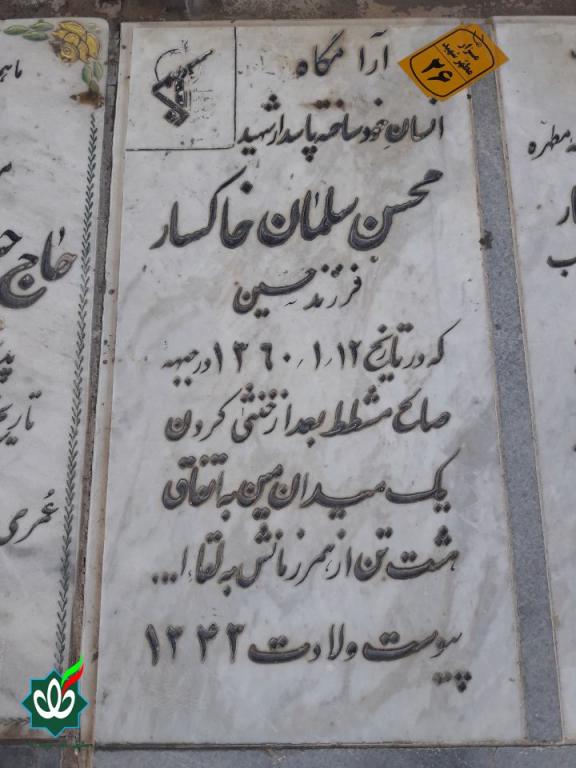 آرامگاه
مزار
مطهر شهید
۲۶
انسان خودساخته پاسدار شهید
محسن سلمان خاکسار
فرزند حسین
که در تاریخ ۱۲/۱/۱۳۶۰ در جبهه
صالح مشطط بعد از خنثی کردن
یک میدان مین به اتفاق
هشت تن از همرزمانش به لقاء ا...
پیوست ولادت ۱۳۴۳
حاج
تاریخ
عمری
مطهره